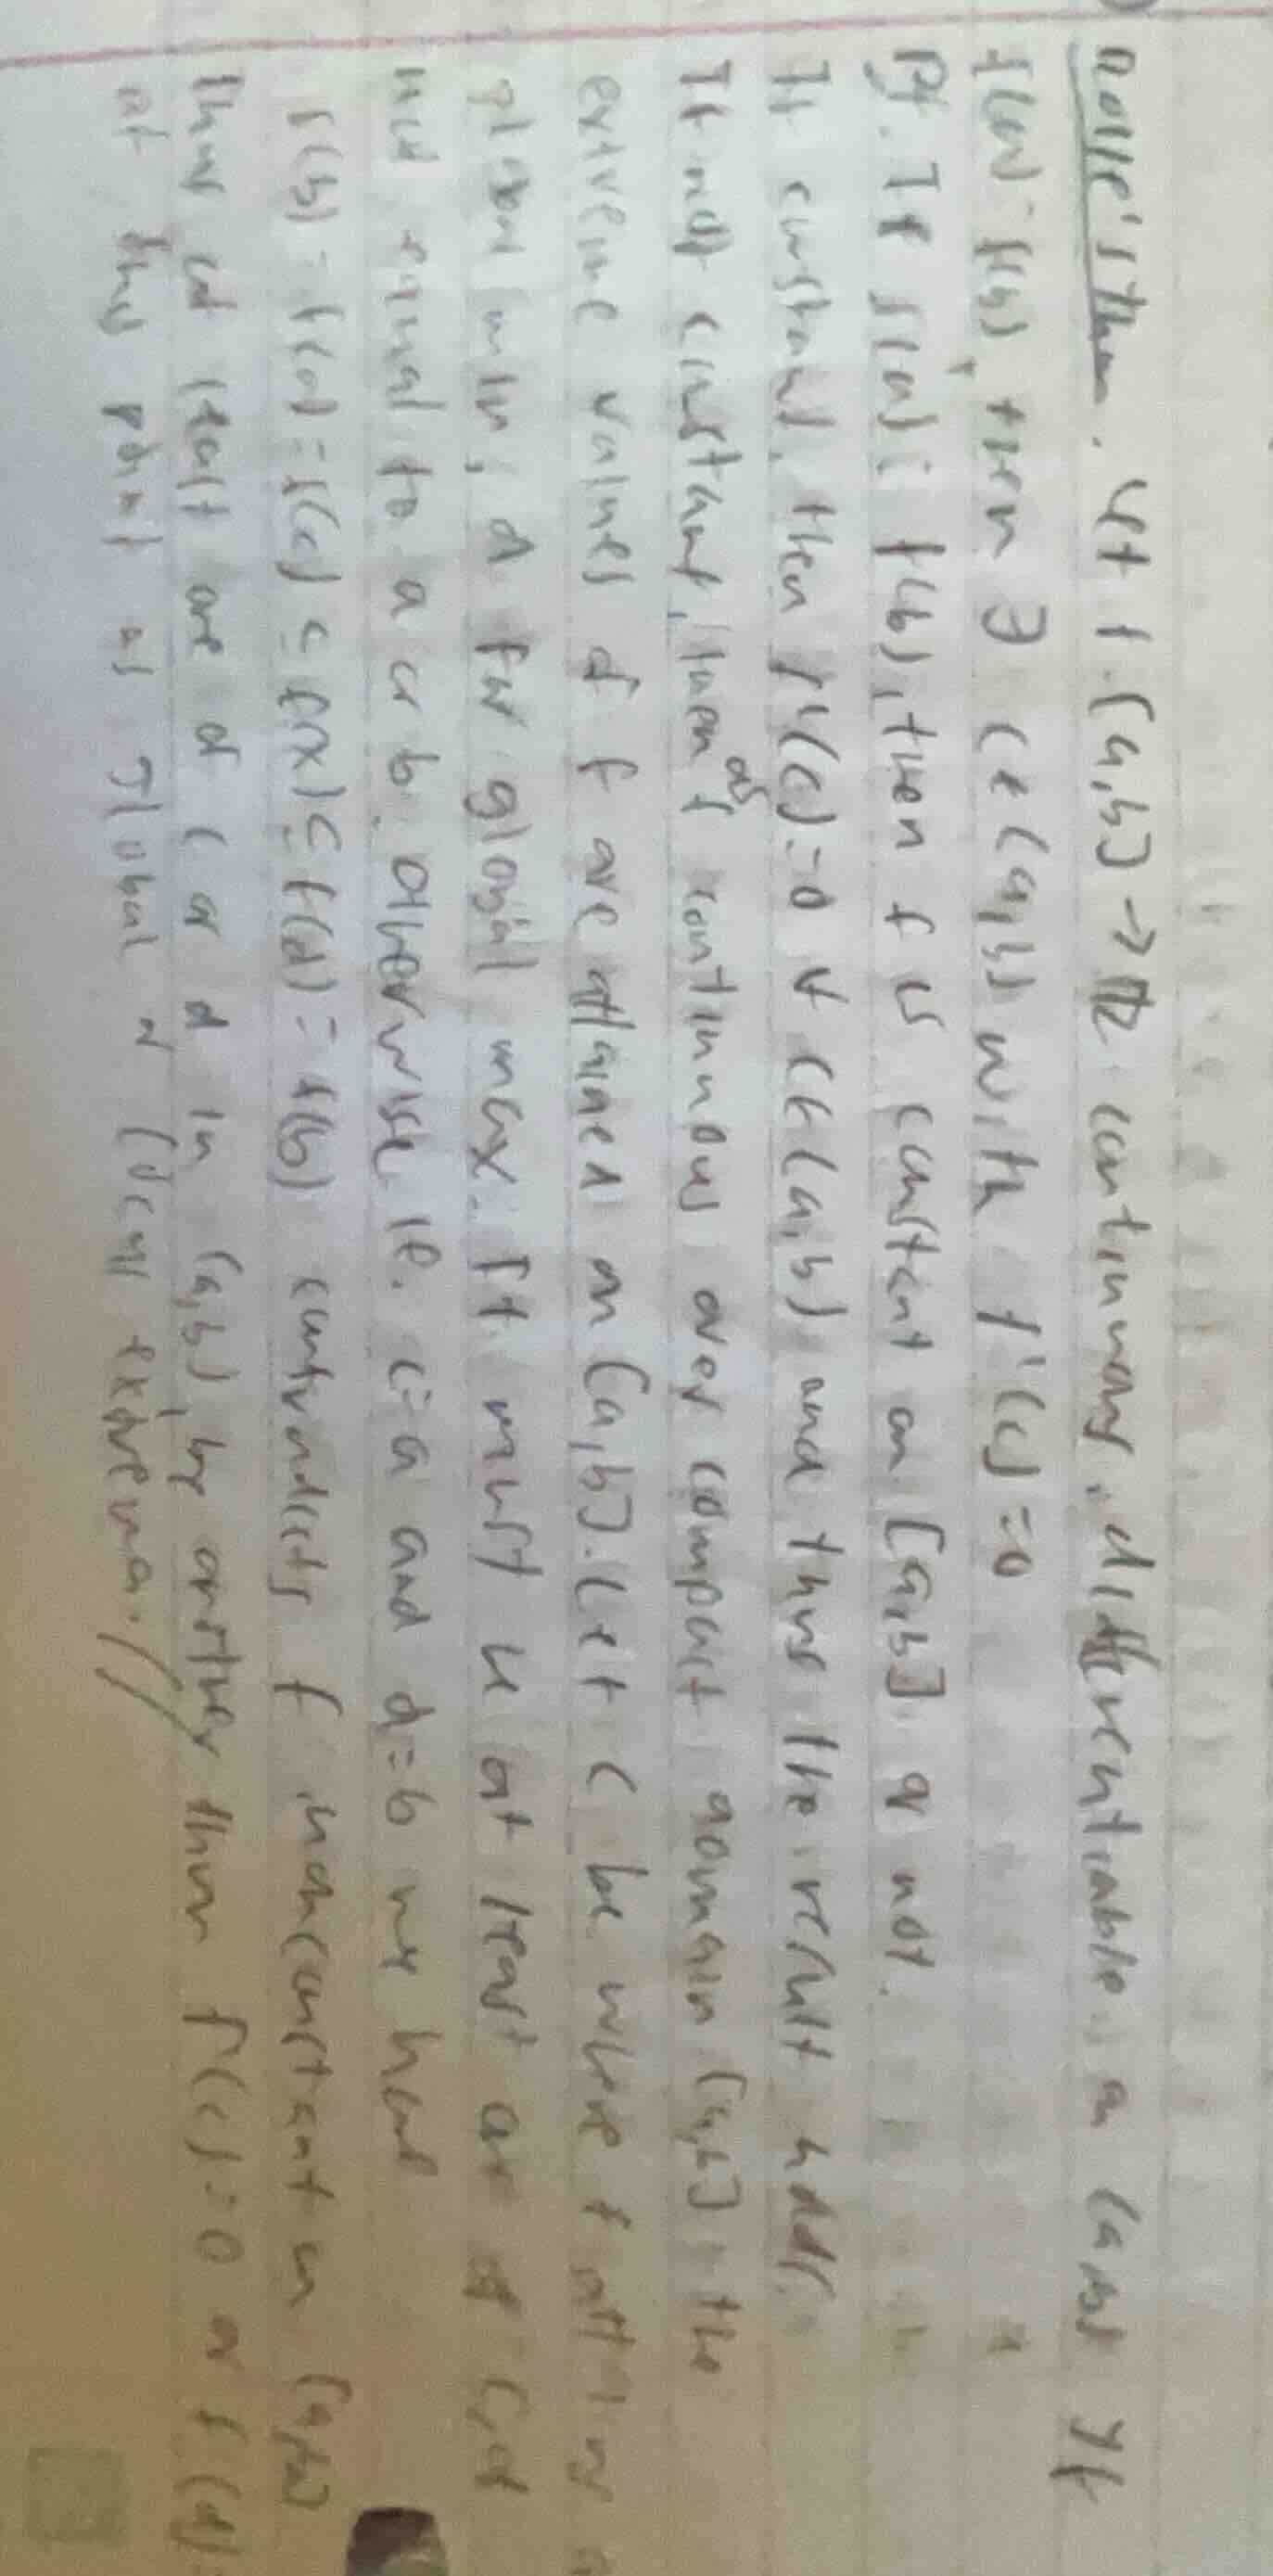 Rolle's thm. Let f: [a,b] → R continuous, differentiable on (a,b) If
f(a) = f(b), then ∃ c ∈ (a,b) with f'(c) = 0
Pf. If f(a) = f(b), then f is constant on [a,b] or not.
If constant, then f'(c) = 0 ∀ c ∈ (a,b) and thus the result holds.
If not constant, then as f continuous over compact domain [a,b], the
extreme values of f are attained on [a,b]. Let c be where f attains a
global min, d for global max. It must be at least one of c, d
not equal to a or b. Otherwise, ie. c=a and d=b we have
f(b) = f(a) = f(c) ≤ f(x) ≤ f(d) = f(b) contradicts f nonconstant on
thus at least one of c or d in (a,b), by another thm f'(c) = 0 or f'(d) =
at this point as global or local extrema. //